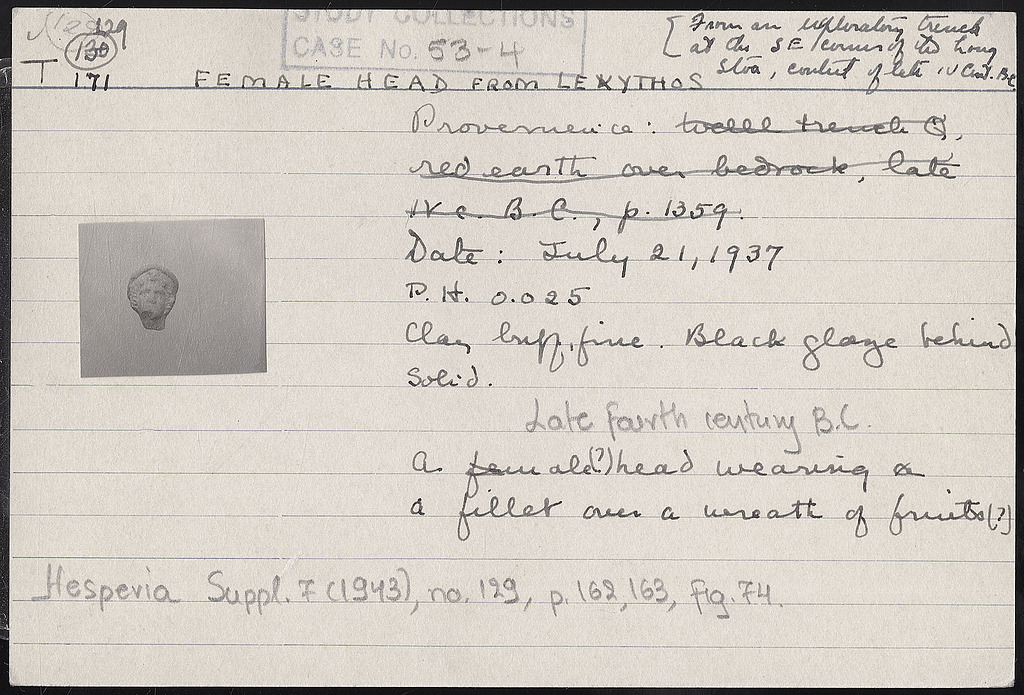 129
130
T 171
STUDY COLLECTIONS
CASE No. 53-4
[From an exploratory trench
at the SE corner of the Long
Stoa, context of late IV Cent. B.C.
FEMALE HEAD FROM LEKYTHOS
Provenience: trench Q,
red earth over bedrock, late
IV c. B.C., p. 1359.
Date: July 21, 1937
P.H. 0.025
Clay buff, fine. Black glaze behind
Solid.
Late fourth century B.C.
A female(?) head wearing
a fillet over a wreath of fruits(?)
Hesperia Suppl. 7 (1943), no. 129, p. 162, 163, fig. 74.